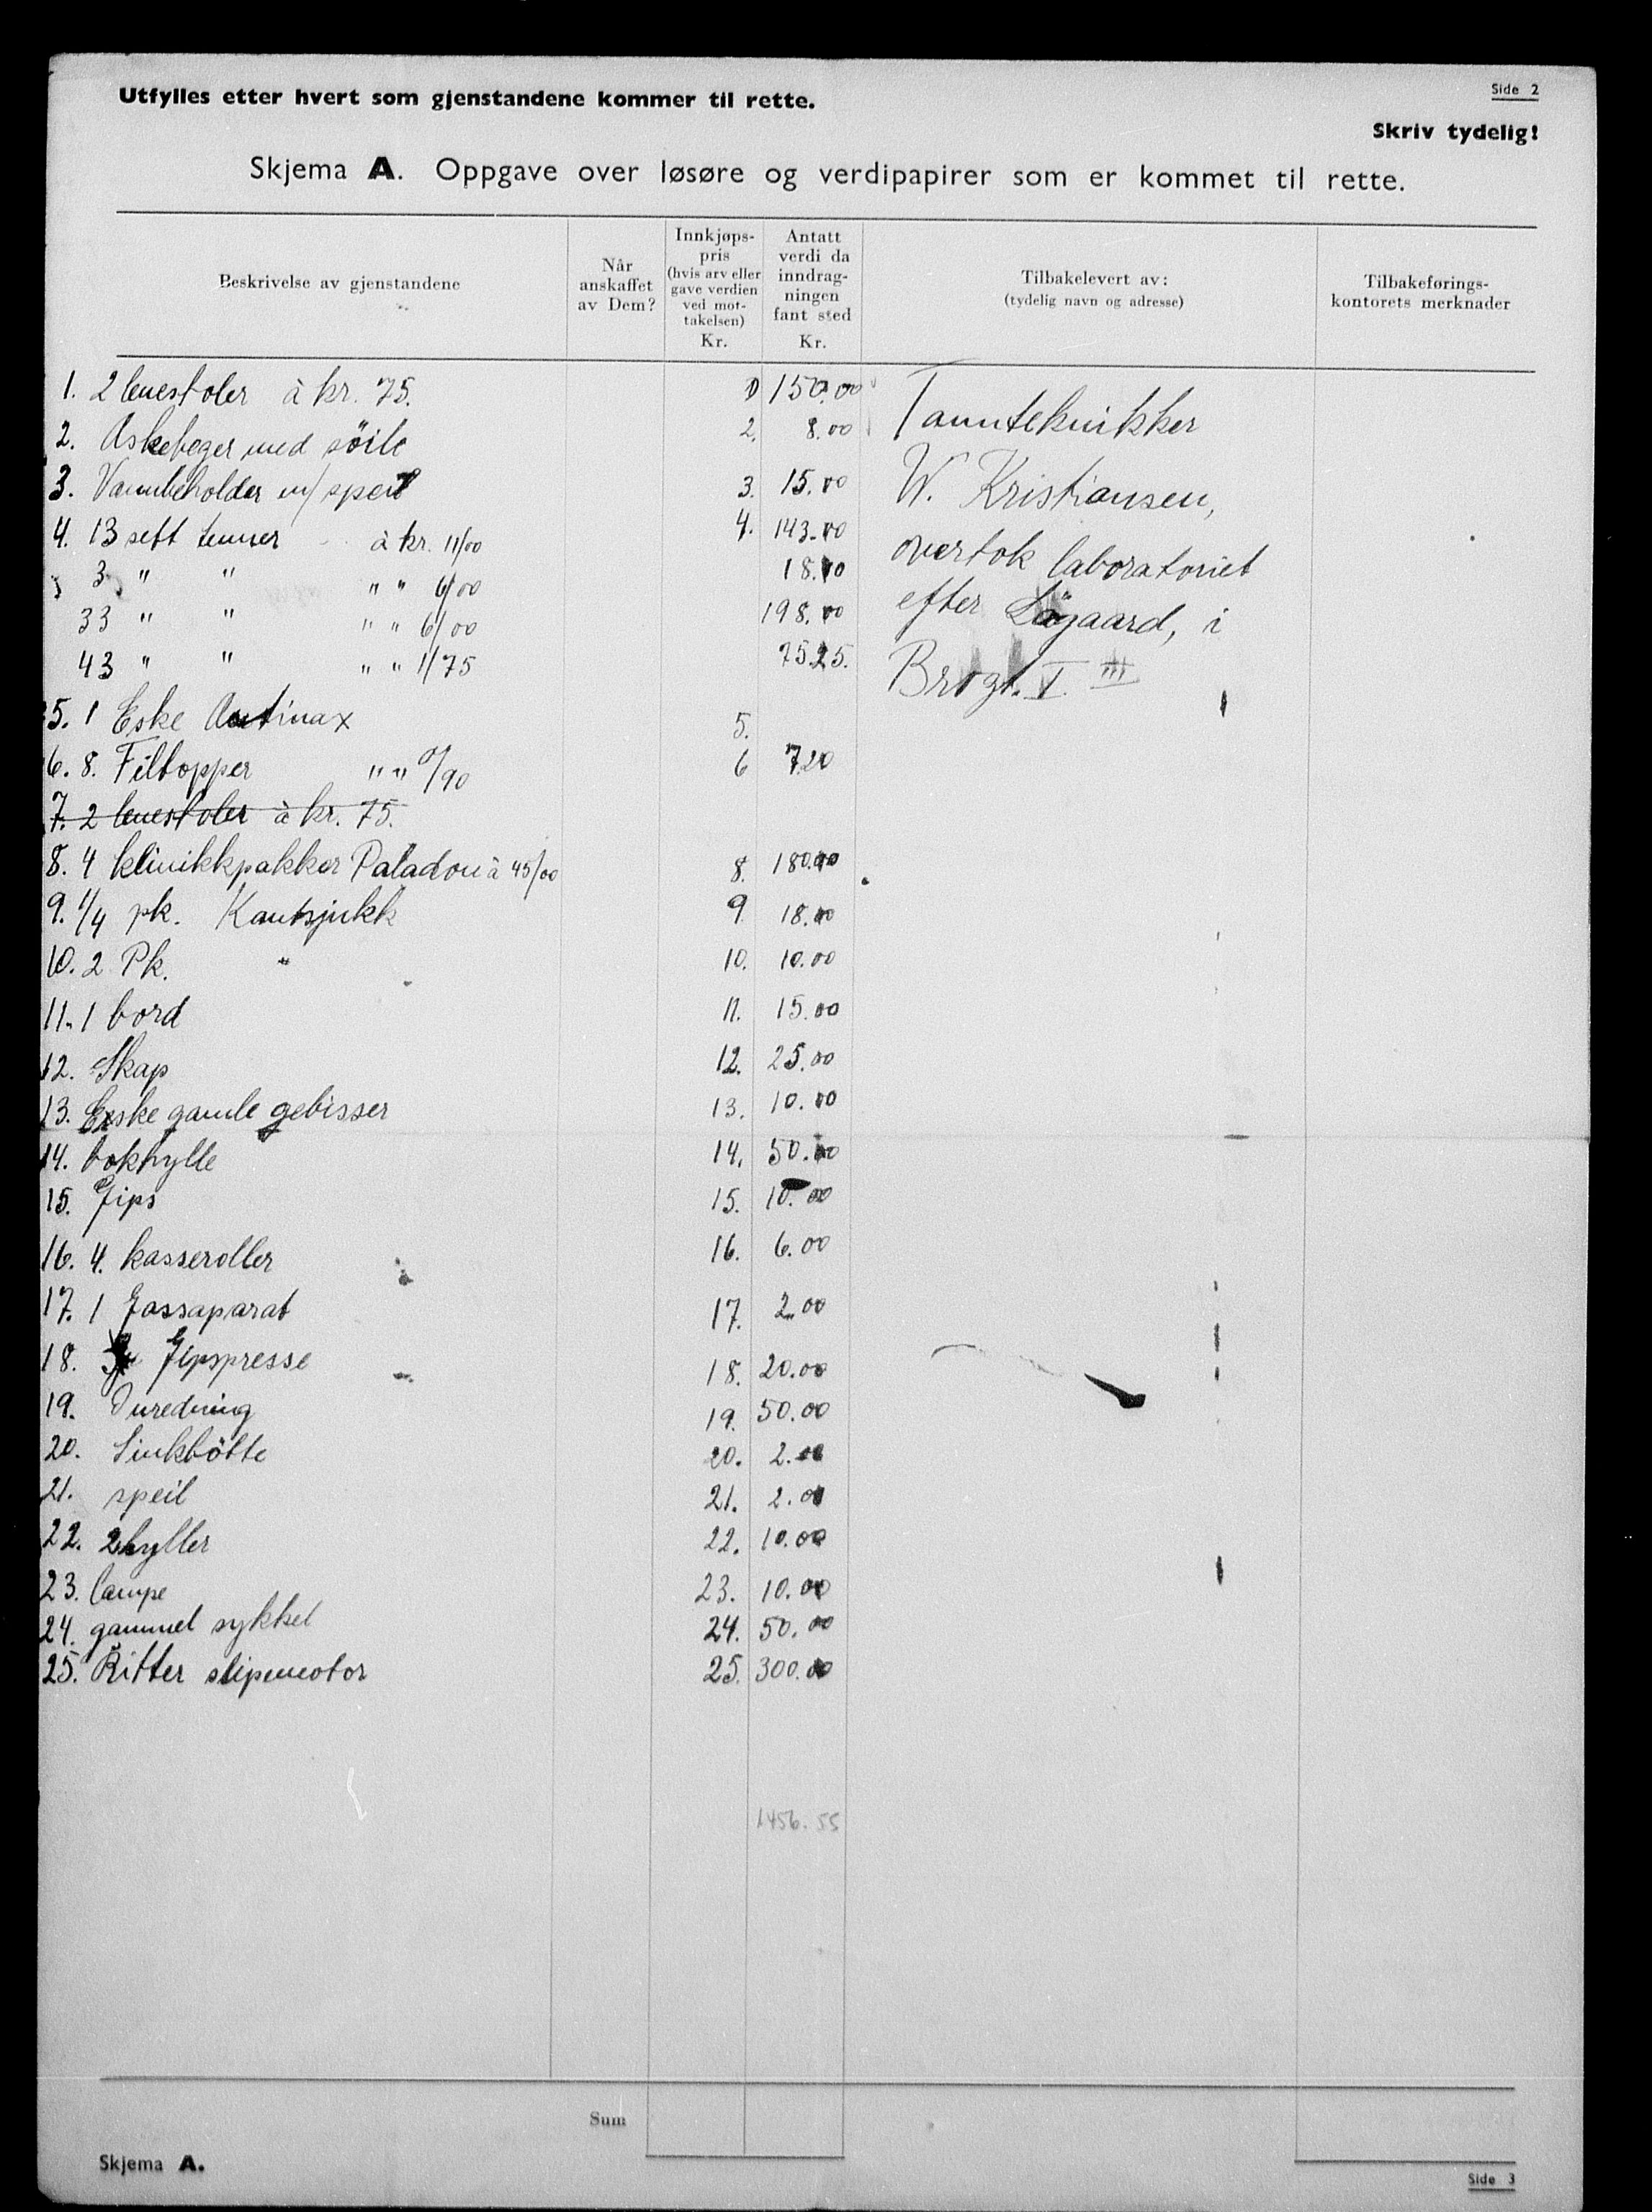 Utfylles etter hvert som gjenstandene kommer til rette.
Side 2
Skriv tydelig!
Skjema A. Oppgave over løsøre og verdipapirer som er kommet til rette.
Beskrivelse av gjenstandene
Når anskaffet av Dem?
Innkjøps-pris (hvis arv eller gave verdien ved mot-takelsen) Kr.
Antatt verdi da inndrag-ningen fant sted Kr.
Tilbakelevert av: (tydelig navn og adresse)
Tilbakeførings-kontorets merknader
1. 2 lenestoler à kr. 75. 1) 150.00
2. Askebeger med söile 2. 8.00
3. Vannbeholder m/ speil 3. 15.00
4. 13 sett tenner à kr. 11/00 4. 143.00
3 " " " " 6/00 18.00
33 " " " " 6/00 198.00
43 " " " " 1/75 75.25.
Tannteknikker
W. Kristiansen,
overtok laboratoriet
efter Lögaard, i
Brogt.
5. 1 Eske Autinax 5.
6. 8. Filtopper " " 0/90 6 7.20
7. 2 lenestoler à kr. 75.
8. 4 klinikkpakker Paladon à 45/00 8. 180.00
9. 1/4 pk. Kautsjukk 9 18.00
10. 2 Pk. " 10. 10.00
11. 1 bord 11. 15.00
12. Skap 12. 25.00
13. Eske gamle gebisser 13. 10.00
14. bokhylle 14. 50.00
15. Gips 15. 10.00
16. 4. kasseroller 16. 6.00
17. 1 Gassaparat 17. 2.00
18. Gipspresse 18. 20.00
19. Inredning 19. 50.00
20. Sinkbötte 20. 2.00
21. speil 21. 2.00
22. 2 hyller 22. 10.00
23. lampe 23. 10.00
24. gammel sykkel 24. 50.00
25. Ritter slipemotor 25. 300.00
1456.55
Sum
Skjema A.
Side 3